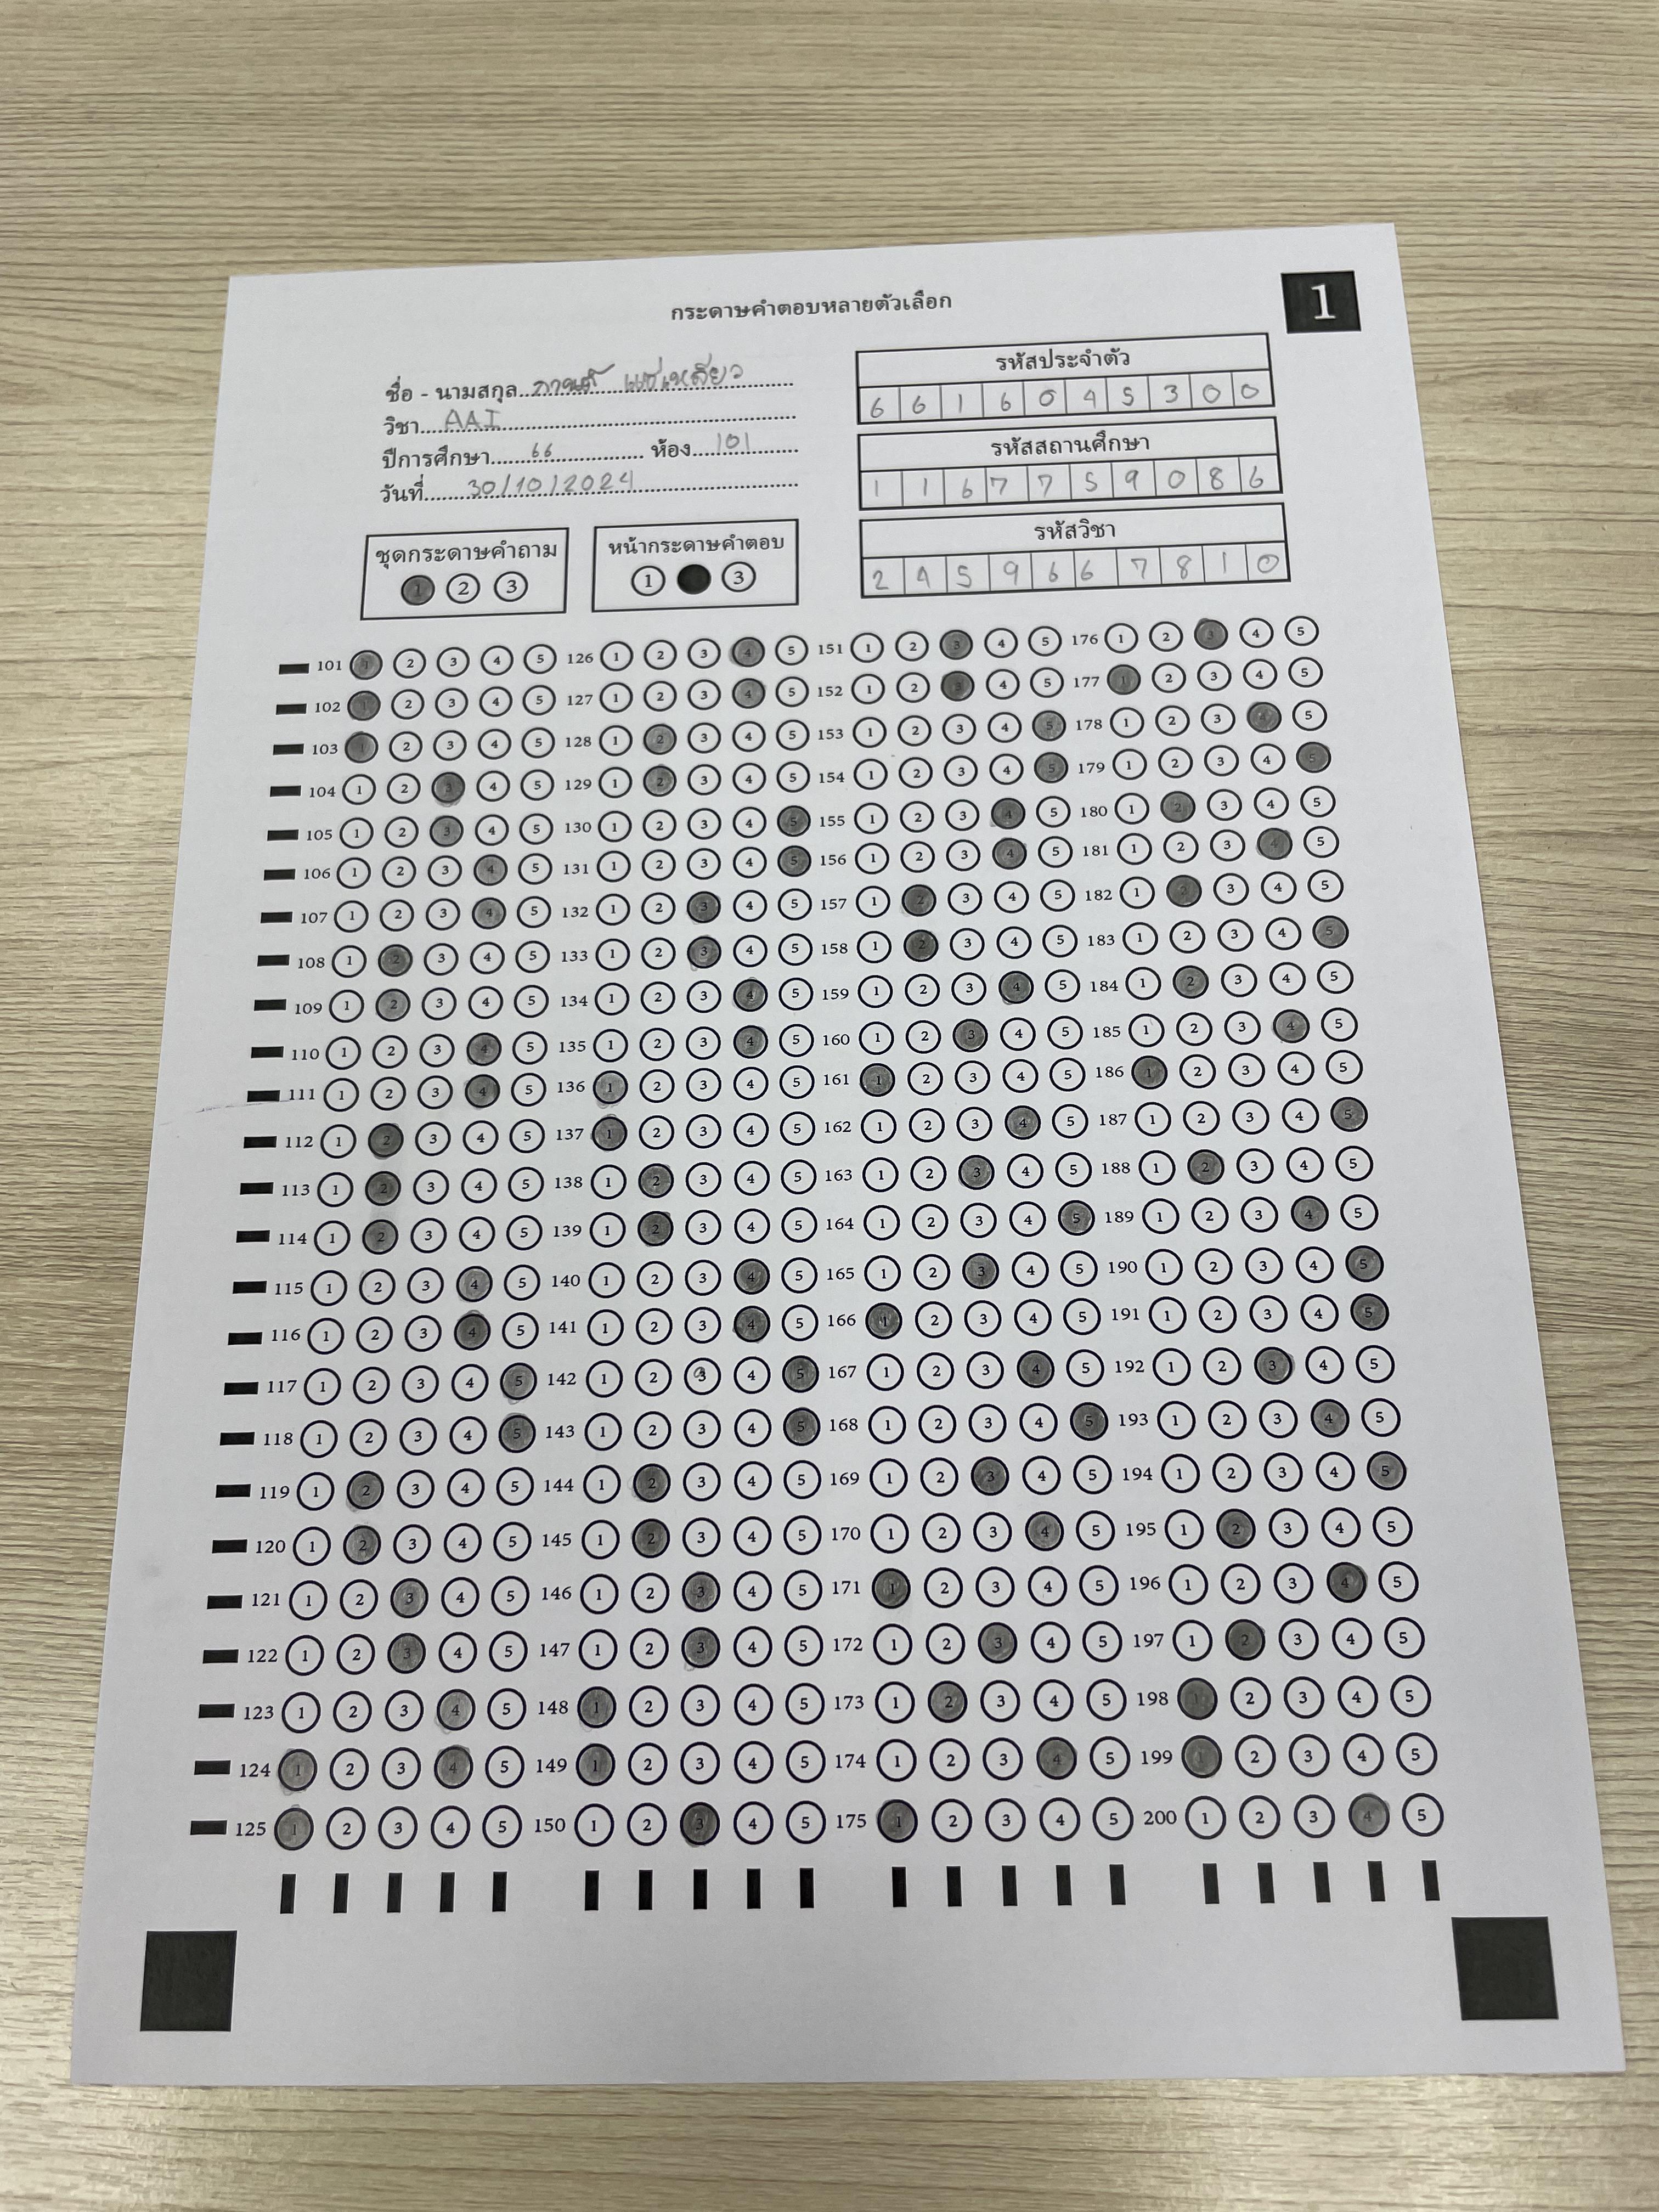 กระดาษคำตอบหลายตัวเลือก
1
ชื่อ - นามสกุล แซ่เหลียว
วิชา AAI
ปีการศึกษา 66 ห้อง 101
วันที่ 30/10/2024
รหัสประจำตัว
6 6 1 6 0 4 5 3 0 0
รหัสสถานศึกษา
1 1 6 7 7 5 9 0 8 6
รหัสวิชา
2 4 5 9 6 6 7 8 1 0
ชุดกระดาษคำถาม
1 2 3
หน้ากระดาษคำตอบ
1 3
101 1 2 3 4 5 126 1 2 3 4 5 151 1 2 3 4 5 176 1 2 3 4 5
102 1 2 3 4 5 127 1 2 3 4 5 152 1 2 3 4 5 177 1 2 3 4 5
103 1 2 3 4 5 128 1 2 3 4 5 153 1 2 3 4 5 178 1 2 3 4 5
104 1 2 3 4 5 129 1 2 3 4 5 154 1 2 3 4 5 179 1 2 3 4 5
105 1 2 3 4 5 130 1 2 3 4 5 155 1 2 3 4 5 180 1 2 3 4 5
106 1 2 3 4 5 131 1 2 3 4 5 156 1 2 3 4 5 181 1 2 3 4 5
107 1 2 3 4 5 132 1 2 3 4 5 157 1 2 3 4 5 182 1 2 3 4 5
108 1 2 3 4 5 133 1 2 3 4 5 158 1 2 3 4 5 183 1 2 3 4 5
109 1 2 3 4 5 134 1 2 3 4 5 159 1 2 3 4 5 184 1 2 3 4 5
110 1 2 3 4 5 135 1 2 3 4 5 160 1 2 3 4 5 185 1 2 3 4 5
111 1 2 3 4 5 136 1 2 3 4 5 161 1 2 3 4 5 186 1 2 3 4 5
112 1 2 3 4 5 137 1 2 3 4 5 162 1 2 3 4 5 187 1 2 3 4 5
113 1 2 3 4 5 138 1 2 3 4 5 163 1 2 3 4 5 188 1 2 3 4 5
114 1 2 3 4 5 139 1 2 3 4 5 164 1 2 3 4 5 189 1 2 3 4 5
115 1 2 3 4 5 140 1 2 3 4 5 165 1 2 3 4 5 190 1 2 3 4 5
116 1 2 3 4 5 141 1 2 3 4 5 166 1 2 3 4 5 191 1 2 3 4 5
117 1 2 3 4 5 142 1 2 3 4 5 167 1 2 3 4 5 192 1 2 3 4 5
118 1 2 3 4 5 143 1 2 3 4 5 168 1 2 3 4 5 193 1 2 3 4 5
119 1 2 3 4 5 144 1 2 3 4 5 169 1 2 3 4 5 194 1 2 3 4 5
120 1 2 3 4 5 145 1 2 3 4 5 170 1 2 3 4 5 195 1 2 3 4 5
121 1 2 3 4 5 146 1 2 3 4 5 171 1 2 3 4 5 196 1 2 3 4 5
122 1 2 3 4 5 147 1 2 3 4 5 172 1 2 3 4 5 197 1 2 3 4 5
123 1 2 3 4 5 148 1 2 3 4 5 173 1 2 3 4 5 198 1 2 3 4 5
124 1 2 3 4 5 149 1 2 3 4 5 174 1 2 3 4 5 199 1 2 3 4 5
125 1 2 3 4 5 150 1 2 3 4 5 175 1 2 3 4 5 200 1 2 3 4 5